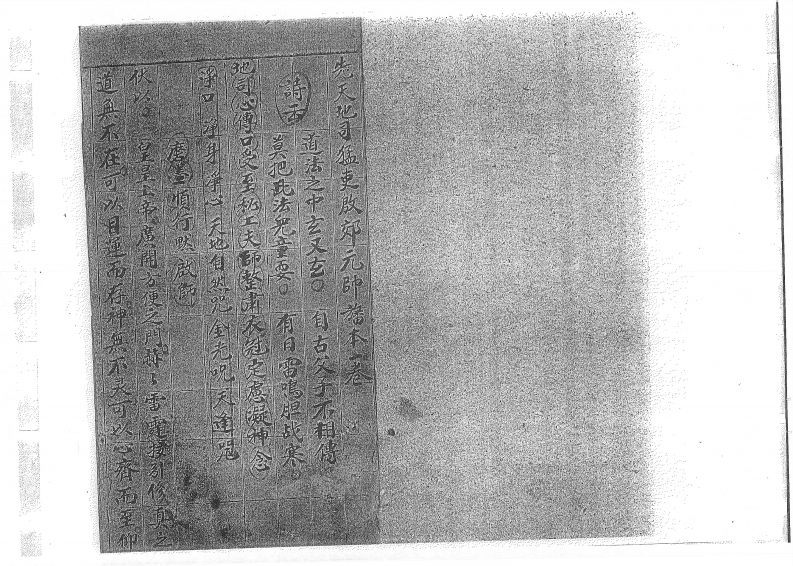 先天地司猛吏啟郊元帥 旛本一卷
詩云
道法之中玄又玄。 自古父子不相傳
莫把此法兒童耍。 有日雷鳴胆战寒。
地司心傳口受至秘工夫師整肃衣冠定慮凝神念
淨口 淨身 淨心 天地自然咒 金光咒 天蓬咒
唐 順行默啟師
伏以 皇皇上帝廣開方便之門 雷霆接引修真之
道無不在可以目運而存神無不灵可以心齊而至仰